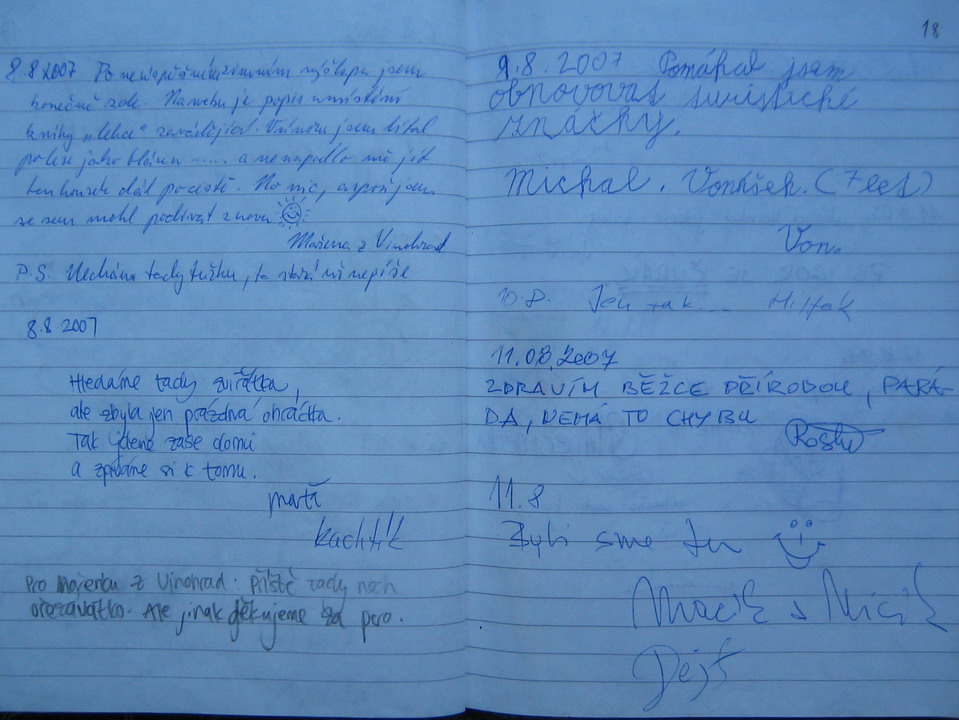 8.8 2007 Po neúspěšném zimním výšlapu jsem
konečně zde. Na webu je popis umístění
knihy „lehce“ zavádějící. V zimě jsem lítal
po lese jako blázen ..... a nenapadlo mě jít
ten kousek dál po cestě. No nic, aspoň jsem
se sem mohl podívat znovu
Mařena z Vinohrad
P.S. Nechám tady tužku, ta stará už nepíše
8.8 2007
Hledáme tady zvířátka,
ale zbyla jen prázdná ohrádka.
Tak jdeme zase domů
a zpíváme si k tomu.
martí
kachtík
Pro Mařenku z Vinohrad: příště tady nech
ořezávátko. Ale jinak děkujeme za pero.
18
9.8.2007 Pomáhal jsem
obnovovat turistické
značky.
Michal. (7 let)
Von.
10.8. Jen tak....
11.08.2007
ZDRAVÍM BĚŽCE PŘÍRODOU, PARÁ-
DA, NEMÁ TO CHYBU
11.8
Byli sme tu